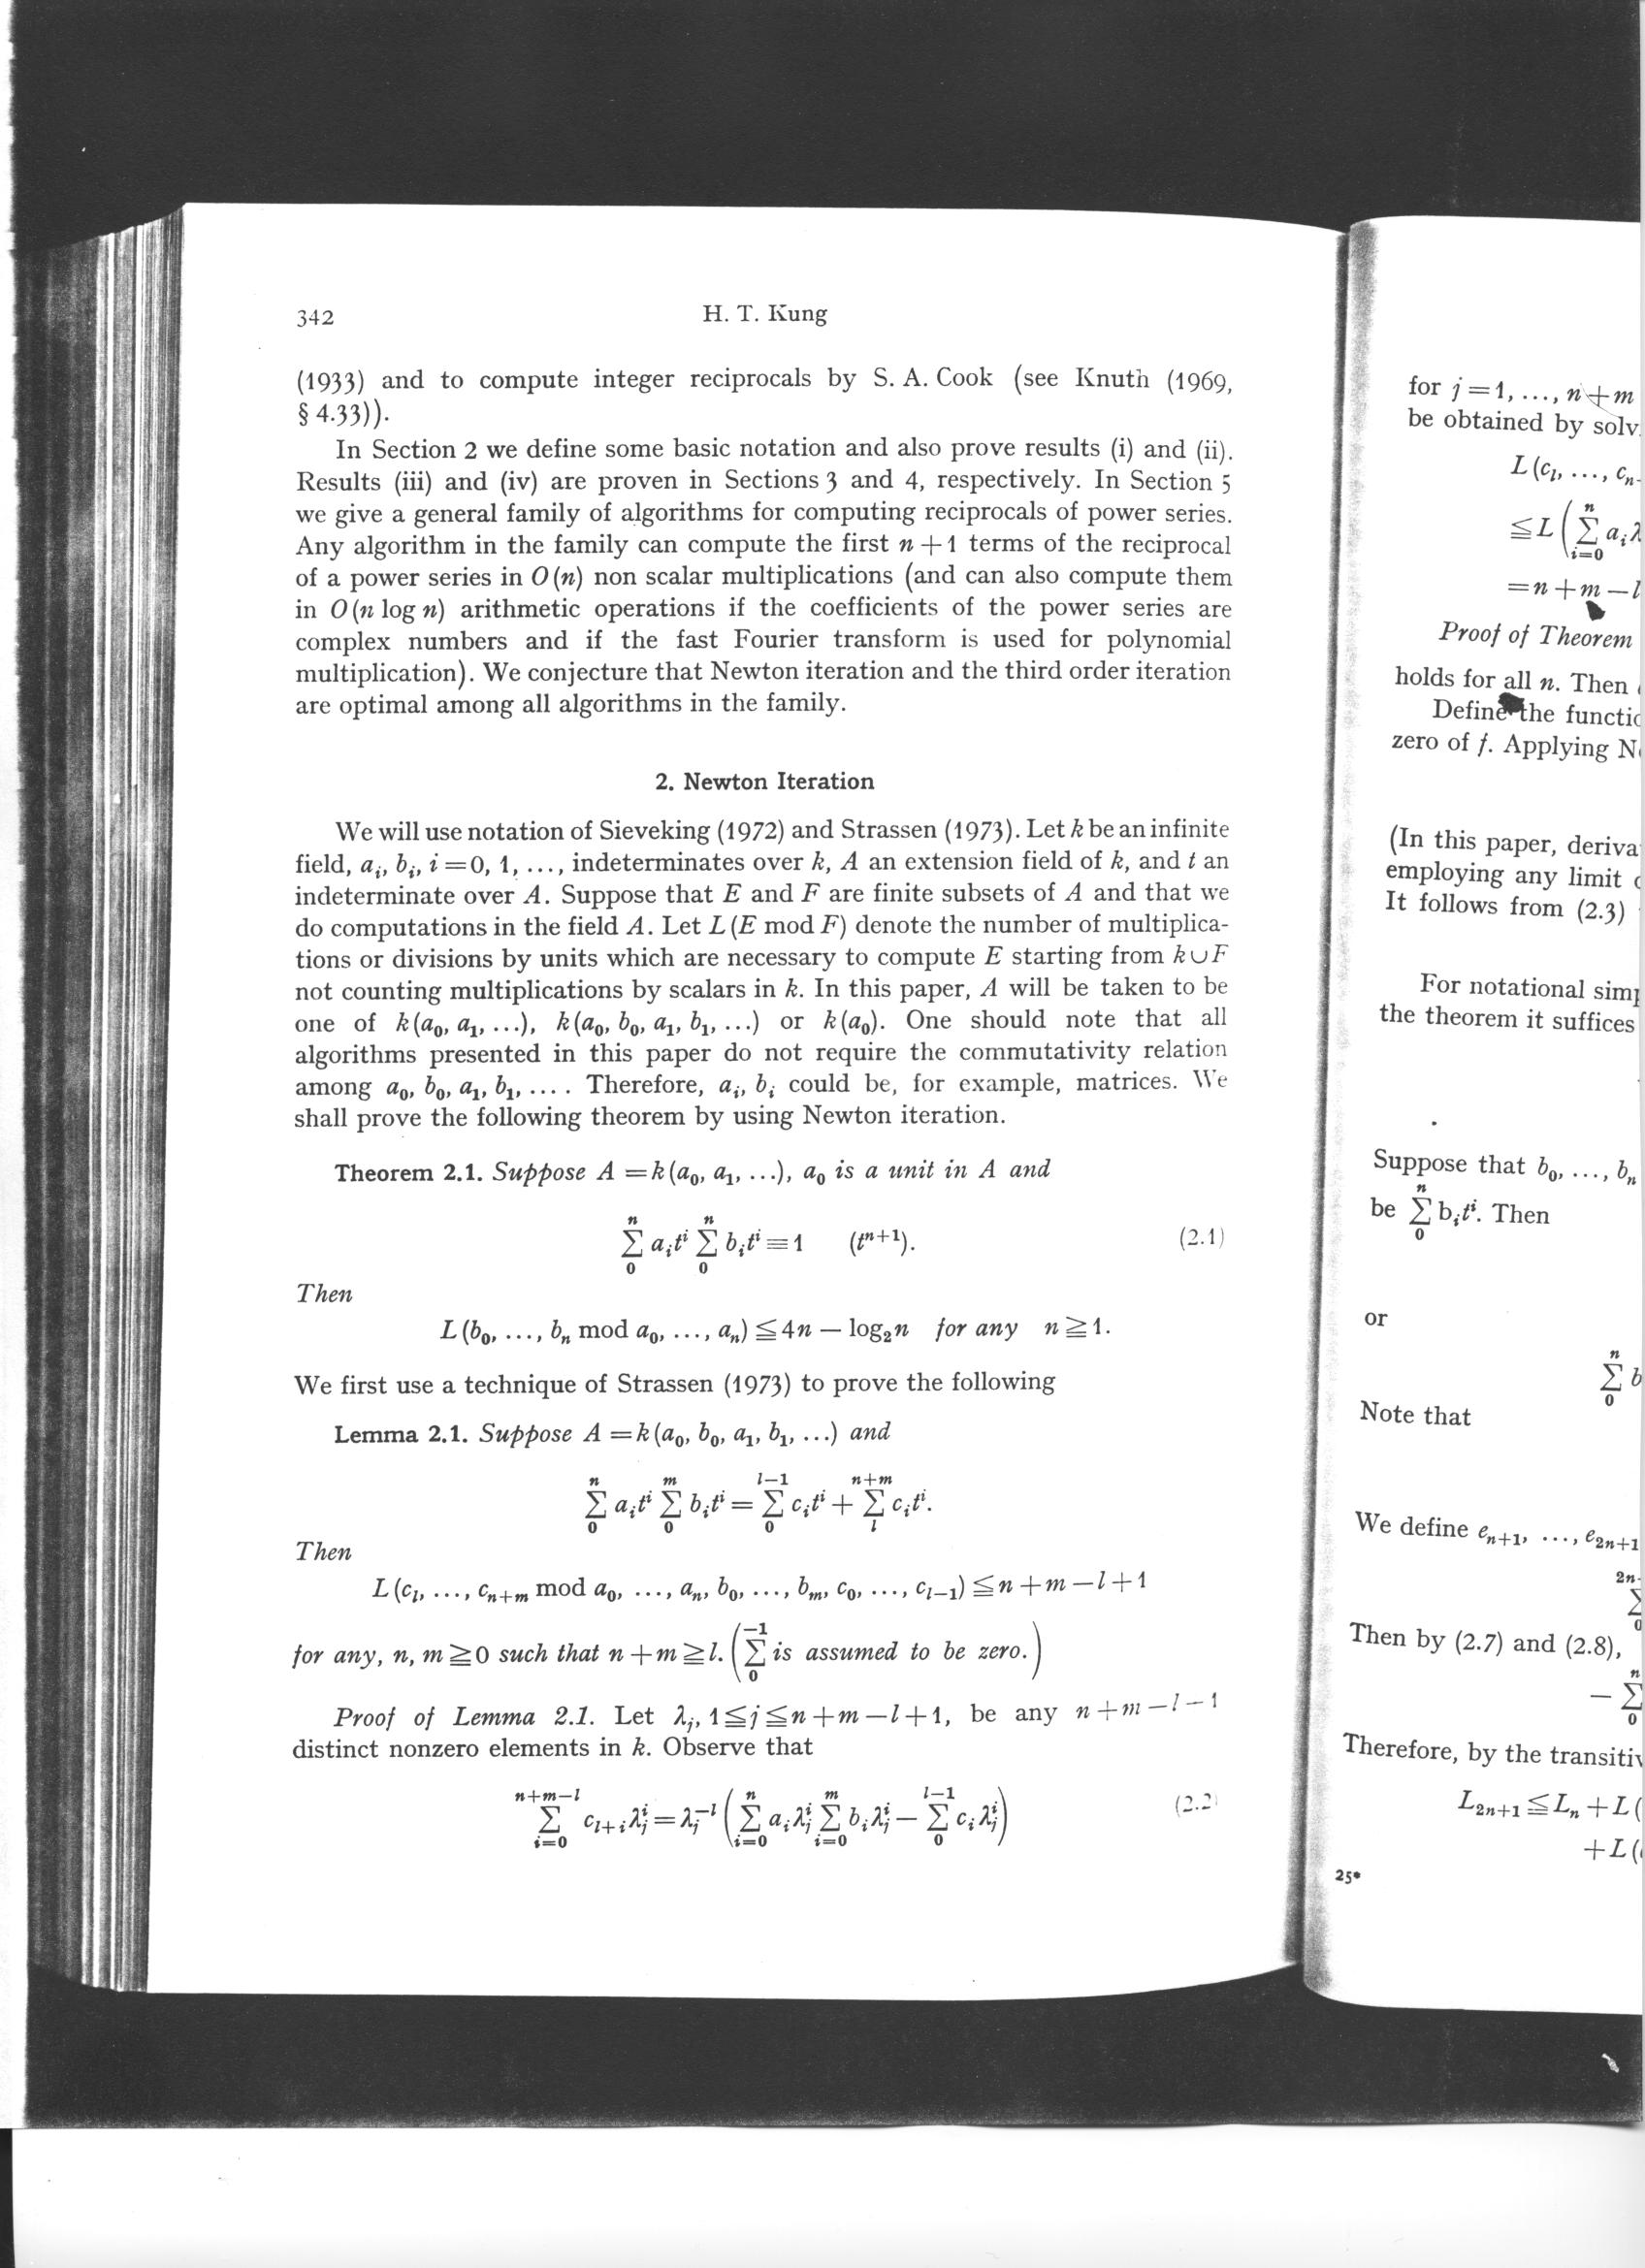 342 H. T. Kung
(1933) and to compute integer reciprocals by S. A. Cook (see Knuth (1969,
§ 4.33)).
In Section 2 we define some basic notation and also prove results (i) and (ii).
Results (iii) and (iv) are proven in Sections 3 and 4, respectively. In Section 5
we give a general family of algorithms for computing reciprocals of power series.
Any algorithm in the family can compute the first n + 1 terms of the reciprocal
of a power series in O(n) non scalar multiplications (and can also compute them
in O(n log n) arithmetic operations if the coefficients of the power series are
complex numbers and if the fast Fourier transform is used for polynomial
multiplication). We conjecture that Newton iteration and the third order iteration
are optimal among all algorithms in the family.
2. Newton Iteration
We will use notation of Sieveking (1972) and Strassen (1973). Let k be an infinite
field, a_i, b_i, i = 0, 1, ..., indeterminates over k, A an extension field of k, and t an
indeterminate over A. Suppose that E and F are finite subsets of A and that we
do computations in the field A. Let L(E mod F) denote the number of multiplica-
tions or divisions by units which are necessary to compute E starting from k ∪ F
not counting multiplications by scalars in k. In this paper, A will be taken to be
one of k(a_0, a_1, ...), k(a_0, b_0, a_1, b_1, ...) or k(a_0). One should note that all
algorithms presented in this paper do not require the commutativity relation
among a_0, b_0, a_1, b_1, .... Therefore, a_i, b_i could be, for example, matrices. We
shall prove the following theorem by using Newton iteration.
Theorem 2.1. Suppose A = k(a_0, a_1, ...), a_0 is a unit in A and
∑_0^n a_i t^i ∑_0^n b_i t^i ≡ 1 (t^{n+1}). (2.1)
Then
L(b_0, ..., b_n mod a_0, ..., a_n) ≦ 4n − log_2 n for any n ≧ 1.
We first use a technique of Strassen (1973) to prove the following
Lemma 2.1. Suppose A = k(a_0, b_0, a_1, b_1, ...) and
∑_0^n a_i t^i ∑_0^m b_i t^i = ∑_0^{l−1} c_i t^i + ∑_l^{n+m} c_i t^i.
Then
L(c_l, ..., c_{n+m} mod a_0, ..., a_n, b_0, ..., b_m, c_0, ..., c_{l−1}) ≦ n + m − l + 1
for any, n, m ≧ 0 such that n + m ≧ l. (∑_0^{−1} is assumed to be zero.)
Proof of Lemma 2.1. Let λ_j, 1 ≦ j ≦ n + m − l + 1, be any n + m − l − 1
distinct nonzero elements in k. Observe that
∑_{i=0}^{n+m−l} c_{l+i} λ_j^i = λ_j^{−l} (∑_{i=0}^n a_i λ_j^i ∑_{i=0}^m b_i λ_j^i − ∑_0^{l−1} c_i λ_j^i) (2.2)
for j = 1, ..., n + m
be obtained by solv
L(c_l, ..., c_n
≦ L(∑_{i=0}^n a_i λ
= n + m − l
Proof of Theorem
holds for all n. Then
Define the functio
zero of f. Applying N
(In this paper, deriva
employing any limit
It follows from (2.3)
For notational sim
the theorem it suffices
Suppose that b_0, ..., b_n
be ∑_0^n b_i t^i. Then
or
∑_0^n b
Note that
We define e_{n+1}, ..., e_{2n+1}
2n
∑
0
Then by (2.7) and (2.8),
− ∑_0^n
Therefore, by the transitiv
L_{2n+1} ≦ L_n + L(
+ L(
25*